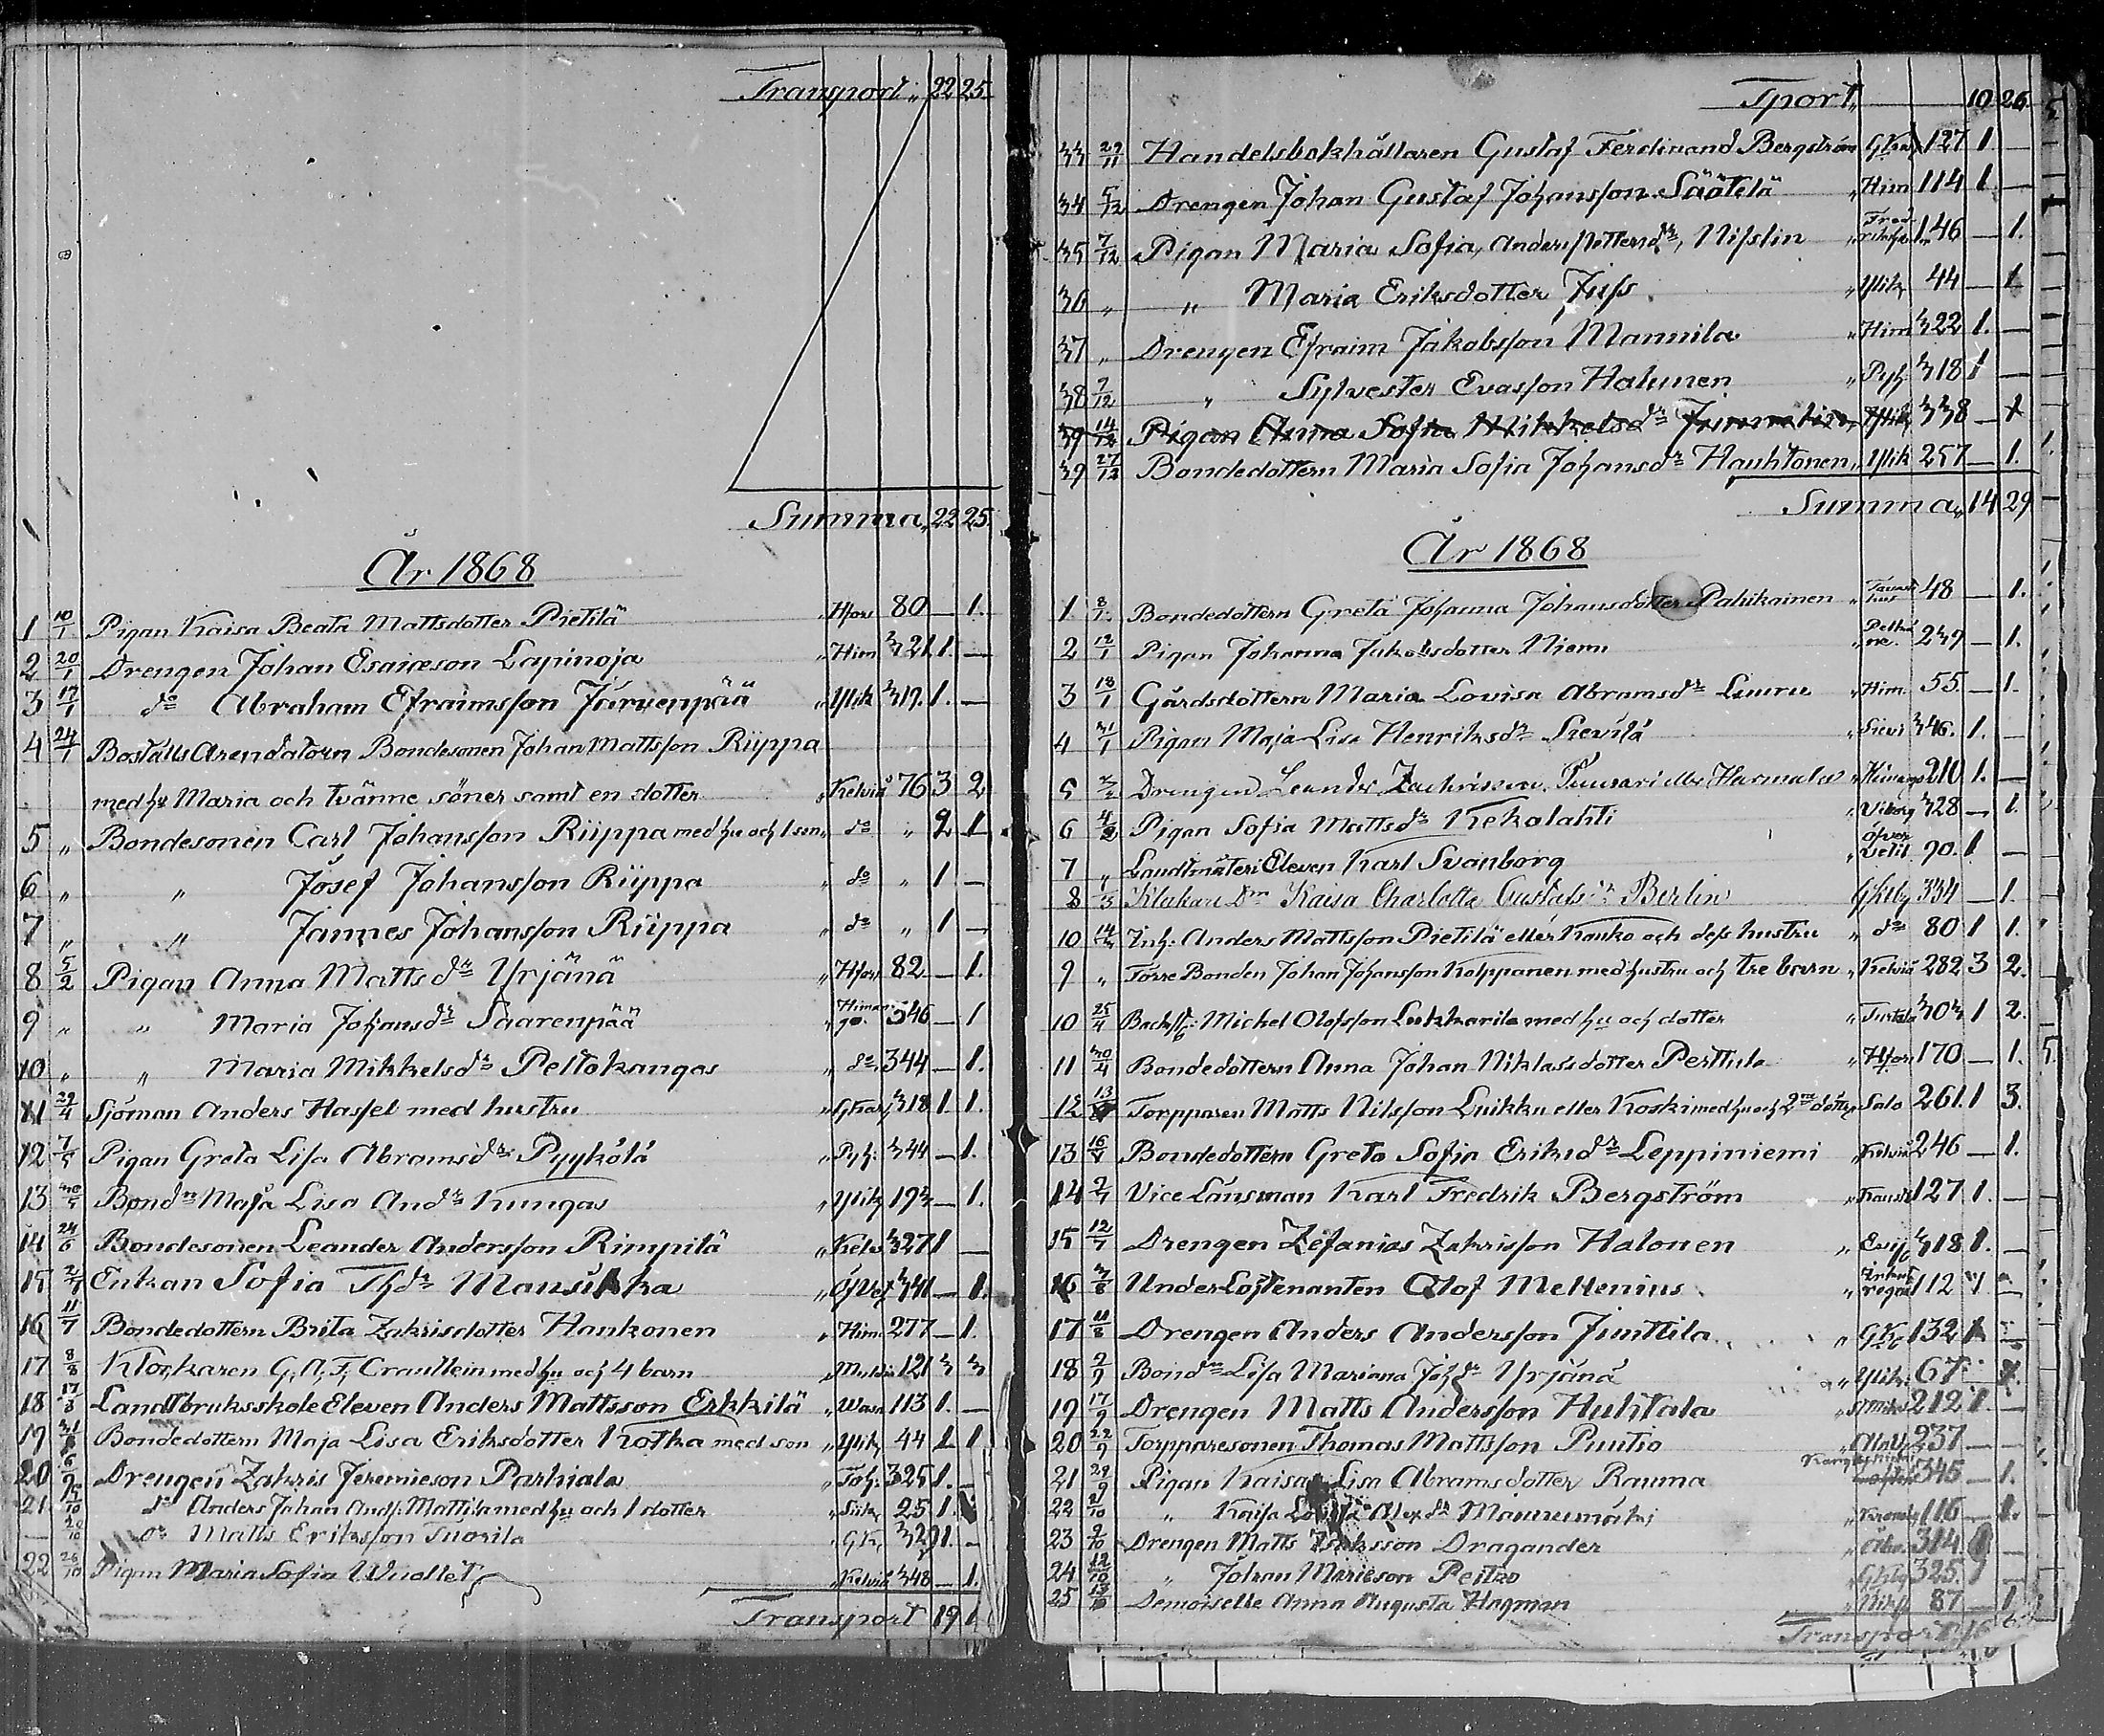 Transport „ 22 25.
Summa „ 22 25.
År 1868
1 10/1 Pigan Kaisa Beata Mattsdotter Pietilä „ Hfors 80 — 1.
2 20/1 Drengen Johan Esaiæson Lapinoja „ Him 321. 1. —
3 17/1 do Abraham Efraimsson Järvenpää „ Ylik 319. 1. —
4 24/1 Boställs Arendatorn Bondesonen Johan Mattsson Riippa
med hu Maria och tvänne söner samt en dotter „ Kelviå 76 3 2
5 „ Bondesonen Carl Johansson Riippa med hu och 1 son „ do „ 2 1
6 „ „ Josef Johansson Riippa „ do „ 1 —
7 „ „ Jannes Johansson Riippa „ do „ 1 —
8 5/2 Pigan Anna Mattsdr Yrjänä „ Hfors 82 — 1.
9 „ „ Maria Johansdr Saarenpää „ Himango. 346 — 1
10 „ „ Maria Mikkelsdr Peltokangas „ do. 344 — 1.
11 29/4 Sjöman Anders Hassel med hustru „ GKarby 318 1 1.
12 7/5 Pigan Greta Lisa Abramsdr Pyykölä „ Pyh: 344 — 1.
13 30/5 Bonddn Maja Lisa Anddr Kungas „ Ylik 193 — 1.
14 24/6 Bondesonen Leander Andersson Rimpilä „ Kelv 327 1 —
15 2/7 Enkan Sofia Thdr Mansikka „ ÖfVet 341 — 1.
16 11/7 Bondedottern Brita Zakrisdotter Hankonen „ Him. 277 — 1.
17 8/8 Klockaren G. A. F. Crautlein med hu och 4 barn 121 3 3
18 17/8 Landtbruksskole Eleven Anders Mattsson Erkkilä „ Wasa 113 1. —
19 31 Bondedottern Maja Lisa Eriksdotter Kotka med son „ Ylik 44 1 1
20 6/9 Drengen Zakris Jeremieson Parhiala „ Toh. 325 1. —
21. 15/10 do Anders Johan Ands. Mattila med hu och 1 dotter 25 1.
— 20/10 do Matts Eriksson Tuorila „ GK. 329 1. —
22 26/10 Pigan Maria Sofia Wuollet „ Kelviå 348 — 1.
Transport 19 1
Tport „ 10 26
33 29/11 Handelsbokhållaren Gustaf Ferdinand Bergström GKarl 127 1. —
34 5/12 Drengen Johan Gustaf Johansson Säätelä „ Him 114 1. —
35 7/12 Pigan Maria Sofia, Anders Pettersdr, Nisslin „ Fredrikshamn 146 — 1.
36 „ „ Maria Eriksdotter Juss „ Ylik 44 — 1
37 „ Drengen Efraim Jakobsson Mannila „ Him 322 1. —
38 7/12 „ Sylvester Evasson Halunen „ Pyh. 318 1 —
39 14/12 Pigan Anna Sofia Mikkelsdr Ylik 338 — 1
39 27/12 Bondedottern Maria Sofia Johansdr Hauhtonen „ Ylik 257 — 1.
Summa „ 14 29
År 1868
1 8/1 Bondedottern Greta Johanna Johansdotter Pahikainen „ Tavastehus 48 — 1.
2 12/1 Pigan Johanna Jakobsdotter Niemi 239 — 1.
3 18/1 Gårdsdottern Maria Lovisa Abramsdr Luuru „ Him. 55. — 1.
4 31/1 Pigan Maja Lisa Henriksdr Sievilä „ Sievi 346. 1. —
5 2/2 Drengen Leander Zachrisson eller Harmala „ Himango 210 1. —
6 4/2 Pigan Sofia Mattsdr Kekolahti „ Viborg 328 — 1.
7 „ Landtmäteri Eleven Karl Svanborg „ Öfver Vetil 90. 1 —
8 Klakare Dtn Kaisa Charlotta Gustafsdr Berlin GKrby 334 — 1.
10 14/3 Inh: Anders Mattsson Pietilä eller Kouko och dess hustru „ do 80 1 1.
9 „ Torre Bonden Johan Johansson Kolppanen med hustru och tre barn „ Kelviå 282 3 2.
10 25/4 Backst: Michel Olofsson Lukkarila med hu och dotter 303 1 2.
11 30/4 Bondedottern Anna Johan Niklasdotter Perttula „ Hfors 170 — 1.
12 13 Torpparen Matts Nilsson Luikku eller Koski med hu och 2ne döttrar Salo 261. 1 3.
13 16 Bondedottern Greta Sofia Eriksdr Leppiniemi „ Kelviå 246 — 1.
14 2/7 Vice Länsman Karl Fredrik Bergström „ Kaustb 127 1. —
15 12/7 Drengen Zefanias Zakrisson Halonen „ Evij. 318 1. —
16 3/8 Under Löjtenanten Olof Mellenius 112 1 —
17 11/8 Drengen Anders Andersson Junttila „ GKb 132 1 —
18 2/9 Bonddn Lisa Mariana Johdr Yrjänä „ Ylik. 67 1.
19 17/9 Drengen Matts Andersson Huhtala 212 1. —
20 22/9 Torpparesonen Thomas Mattsson Puutio 237 — —
21 29/9 Pigan Kaisa Lisa Abramsdotter Rauma 345 — 1.
22 2/10 „ Kaisa Lovisa Alexdr „ Kronoby 116 — 1.
23 9/10 Drengen Matts Isaksson Dragander „ Åbo. 314 1 —
24 12/10 „ Johan Marieson Peitso „ GKby 325. 1 —
25 13/10 Demoiselle Anna Augusta Hagman 87 — 1
Transport 16